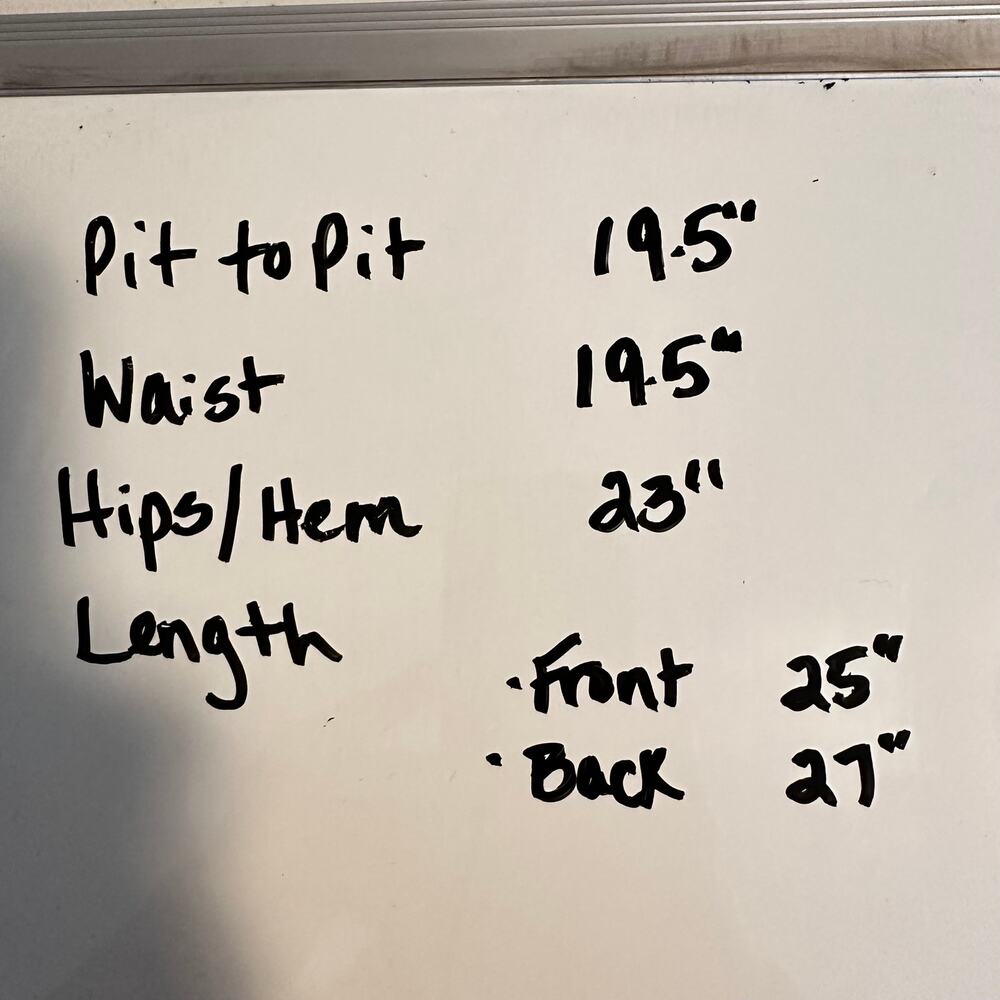 Pit to Pit 19.5"
Waist 19.5"
Hips/Hem 23"
Length
· Front 25"
· Back 27"